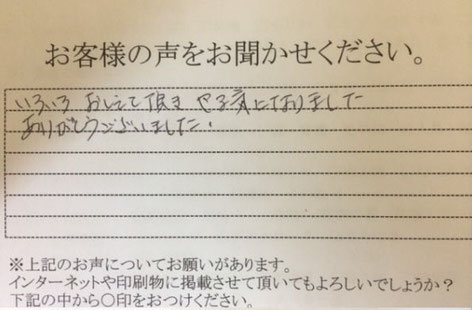 お客様の声をお聞かせください。
いろいろ おしえて頂き やる気になりました
ありがとうございました.
※上記のお声についてお願いがあります。
インターネットや印刷物に掲載させて頂いてもよろしいでしょうか？
下記の中から〇印をおつけください。